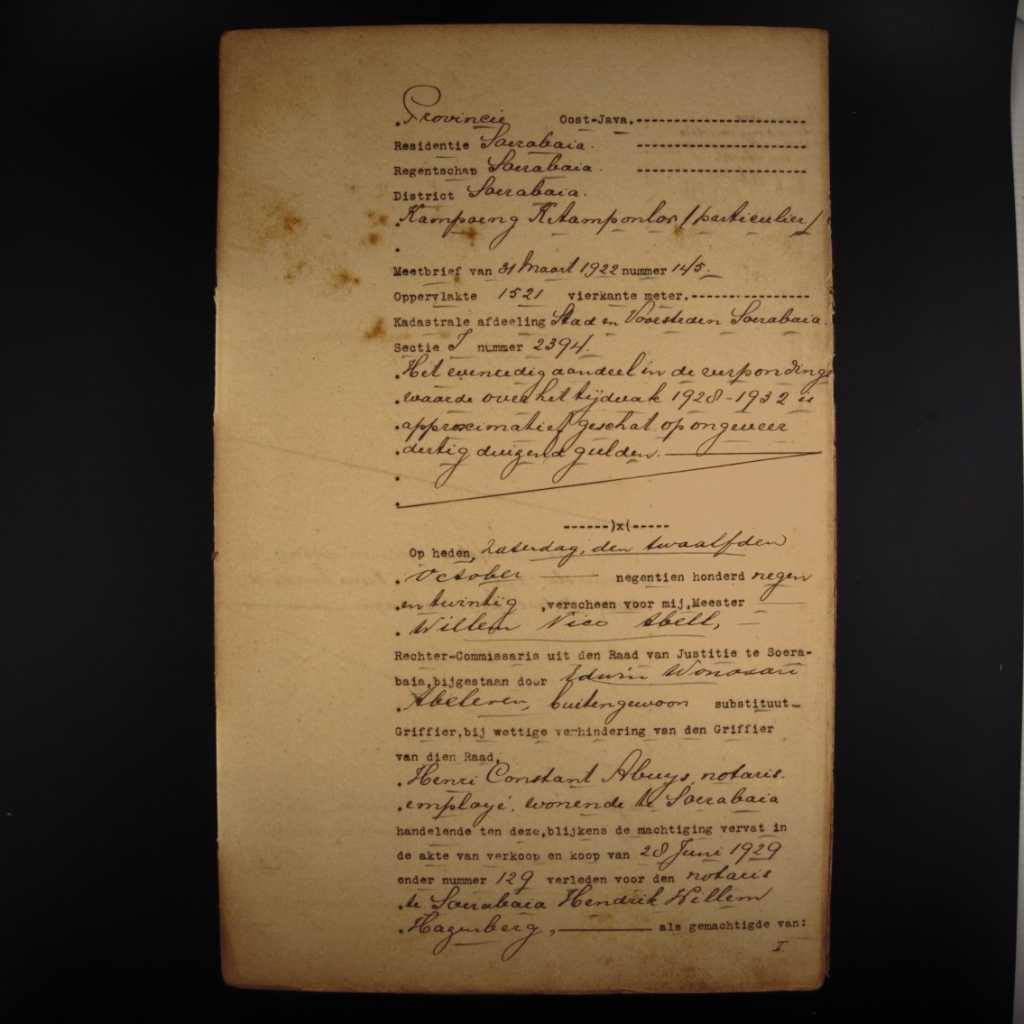 Provincie Oost-Java.-----------------------
Residentie Soerabaia. -----------------------
Regentschap Soerabaia. -----------------------
District Soerabaia.
Kampoeng Ketamponlor /particulier/
Meetbrief van 31 Maart 1922 nummer 145.
Oppervlakte 1521 vierkante meter.----------------
Kadastrale afdeeling Stad en Voorsteden Soerabaia.
Sectie J nummer 2394.
Het evenredig aandeel in de verpondings
waarde over het tijdvak 1928-1932 is
approximatief geschat op ongeveer
dertig duizend gulden.
------)x(-----
Op heden, Zaterdag, den twaalfden
October negentien honderd negen
en twintig ,verscheen voor mij,Meester
Willem Nico Abell,
Rechter-Commissaris uit den Raad van Justitie te Soera-
baia,bijgestaan door Edwin Wonosari
Abeleven, buitengewoon substituut-
Griffier,bij wettige verhindering van den Griffier
van dien Raad,
Henri Constant Abuys, notaris.
employé, wonende te Soerabaia
handelende ten deze,blijkens de machtiging vervat in
de akte van verkoop en koop van 28 Juni 1929
onder nummer 129 verleden voor den notaris
te Soerabaia Hendrik Willem
Hazenberg, als gemachtigde van:
I